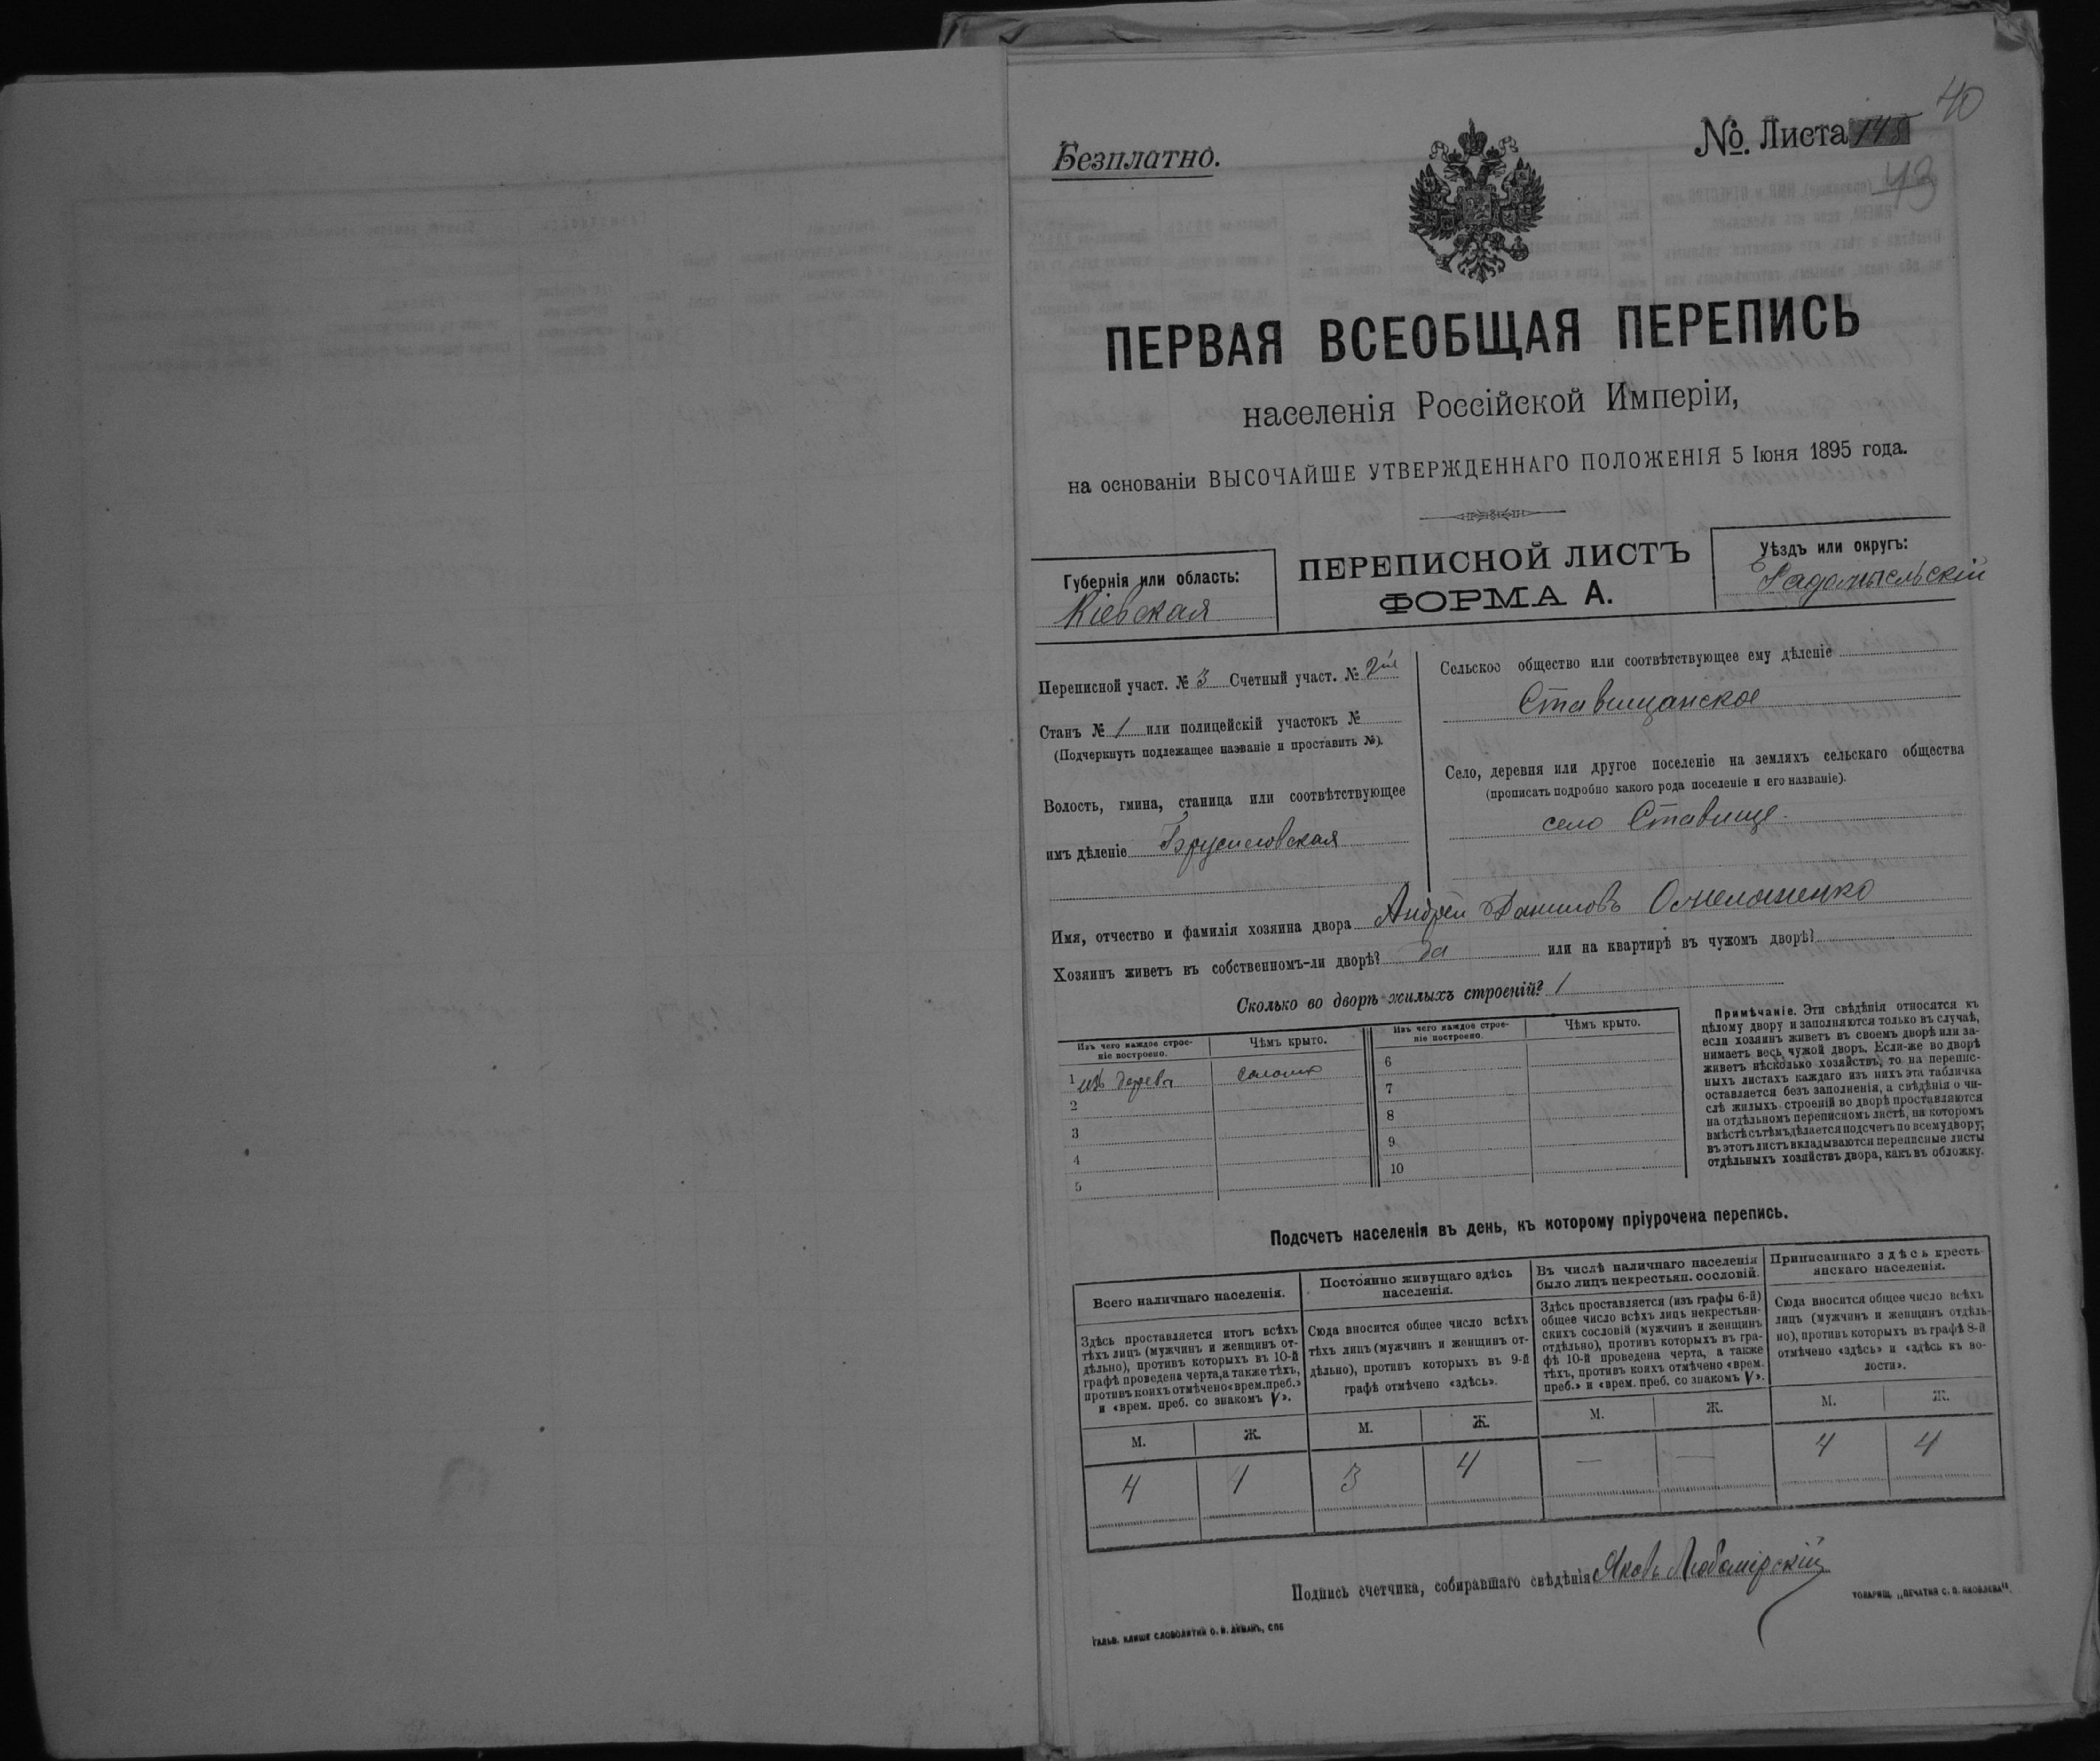 40
Безплатно.
№. Листа 145
43
ПЕРВАЯ ВСЕОБЩАЯ ПЕРЕПИСЬ
населенія Россійской Имперіи,
на основаніи ВЫСОЧАЙШЕ УТВЕРЖДЕННАГО ПОЛОЖЕНІЯ 5 Іюня 1895 года.
Губернія или область:
Кіевская
ПЕРЕПИСНОЙ ЛИСТЪ
ФОРМА А.
Уѣздъ или округъ:
Радомысльскій
Переписной участ. № 3 Счетный участ. № 2й
Станъ № 1 или полицейскій участокъ №
(Подчеркнуть подлежащее названіе и проставить №).
Волость, гмина, станица или соотвѣтствующее
имъ дѣленіе Брусиловская
Сельское общество или соотвѣтствующее ему дѣленіе
Ставищанское
Село, деревня или другое поселеніе на земляхъ сельскаго общества
(прописать подробно какого рода поселеніе и его названіе).
село Ставище.
Имя, отчество и фамилія хозяина двора Андрей Даниловъ
Хозяинъ живетъ въ собственномъ-ли дворѣ? да или на квартирѣ въ чужомъ дворѣ?
Сколько во дворѣ жилыхъ строеній? 1
Изъ чего каждое строе-
ніе построено.
Чѣмъ крыто.
Изъ чего каждое строе-
ніе построено.
Чѣмъ крыто.
1 изъ дерева соломою 6
2 7
3 8
4 9
5 10
Примѣчаніе. Эти свѣдѣнія относятся къ
цѣлому двору и заполняются только въ случаѣ,
если хозяинъ живетъ въ своемъ дворѣ или за-
нимаетъ весь чужой дворъ. Если-же во дворѣ
живетъ нѣсколько хозяйствъ, то на перепис-
ныхъ листахъ каждаго изъ нихъ эта табличка
оставляется безъ заполненія, а свѣдѣнія о чи-
слѣ жилыхъ строеній во дворѣ проставляются
на отдѣльномъ переписномъ листѣ, на которомъ
вмѣстѣ съ тѣмъ дѣлается подсчетъ по всему двору;
въ этотъ листъ вкладываются переписные листы
отдѣльныхъ хозяйствъ двора, какъ въ обложку.
Подсчетъ населенія въ день, къ которому пріурочена перепись.
Всего наличнаго населенія.
Здѣсь проставляется итогъ всѣхъ
тѣхъ лицъ (мужчинъ и женщинъ от-
дѣльно), противъ которыхъ въ 10-й
графѣ проведена черта, а также тѣхъ,
противъ коихъ отмѣчено «врем. преб.»
и «врем. преб. со знакомъ V».
Постоянно живущаго здѣсь
населенія.
Сюда вносится общее число всѣхъ
тѣхъ лицъ (мужчинъ и женщинъ от-
дѣльно), противъ которыхъ въ 9-й
графѣ отмѣчено «здѣсь».
Въ числѣ наличнаго населенія
было лицъ некрестьян. сословій.
Здѣсь проставляется (изъ графы 6-й)
общее число всѣхъ лицъ некрестьян-
скихъ сословій (мужчинъ и женщинъ
отдѣльно), противъ которыхъ въ гра-
фѣ 10-й проведена черта, а также
тѣхъ, противъ коихъ отмѣчено «врем.
преб.» и «врем. преб. со знакомъ V».
Приписаннаго здѣсь кресть-
янскаго населенія.
Сюда вносится общее число всѣхъ
лицъ (мужчинъ и женщинъ отдѣль-
но), противъ которыхъ въ графѣ 8-й
отмѣчено «здѣсь» и «здѣсь къ во-
лости».
М. Ж. М. Ж. М. Ж. М. Ж.
4 4 3 4 — — 4 4
Подпись счетчика, собиравшаго свѣдѣнія Яковъ Любомірскій
ГАЛЬВ. КЛИШЕ СЛОВОЛИТНИ О. И. ЛЕМАНЪ, СПБ
ТОВАРИЩ. „ПЕЧАТНЯ С. П. ЯКОВЛЕВА".